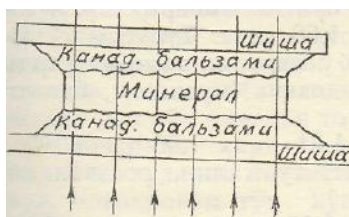 Шиша
Канад. бальзами
Минерал
Канад. бальзами
Шиша